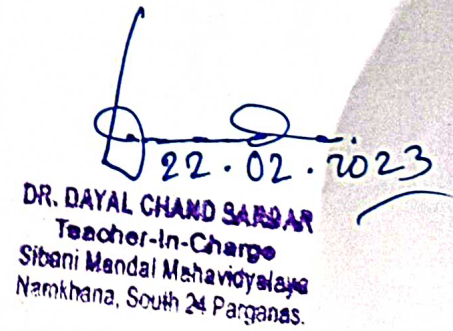 22.02.2023
DR. DAYAL CHAND SARDAR
Teacher-In-Charge
Sibani Mandal Mahavidyalaya
Namkhana, South 24 Parganas.